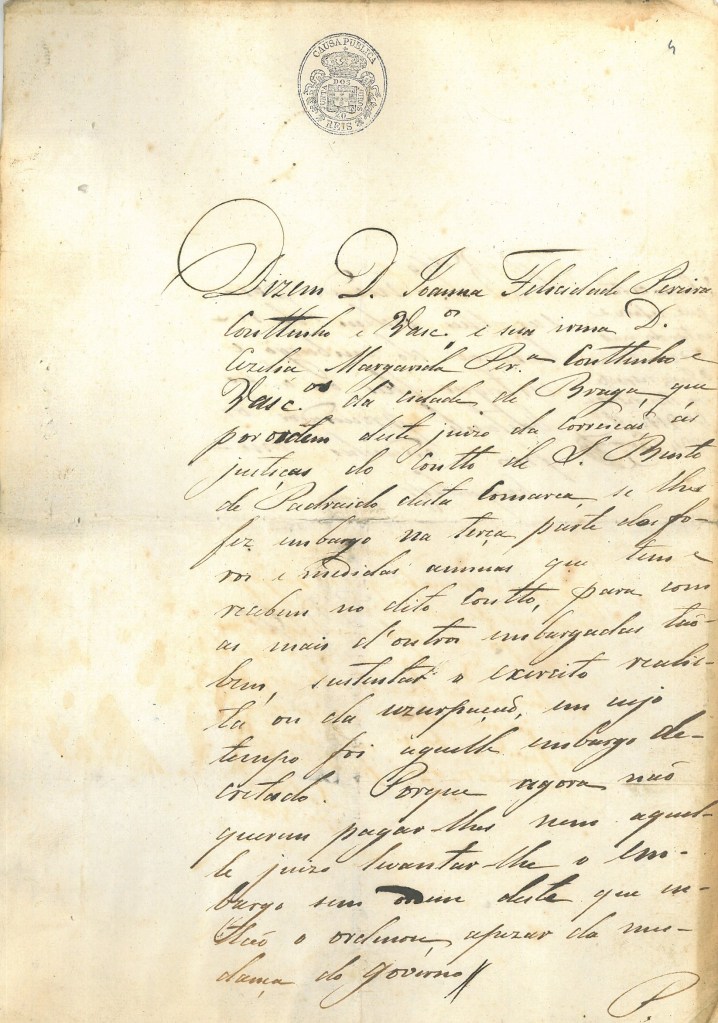 CAUSA PUBLICA
DOS
REIS
Dizem D. Joanna Felicidade Pereira
Couttinho e Vasc.os e sua irma D.
Cezilia Margarida Per.a Couttinho e
Vasc.os da cidade de Braga, que
por ordem deste juizo da Correição ás
justiças do Coutto de S. Bento
de desta Comarca, se lhes
fez embargo na terça parte dos fo-
ros e medidas annuas que tem e
recebem no dito Coutto, para com
as mais d'outros embargadas tão-
bem, sustentar o exercito realis-
ta ou da uzurpação, em cujo
tempo foi aquelle embargo de-
cretado. Porque agora não
querem pagar-lhes nem aquel-
le juizo levantar-lhe o em-
bargo sem ordem deste que en-
tão o ordenou, apezar da mu-
dança do governo
P.